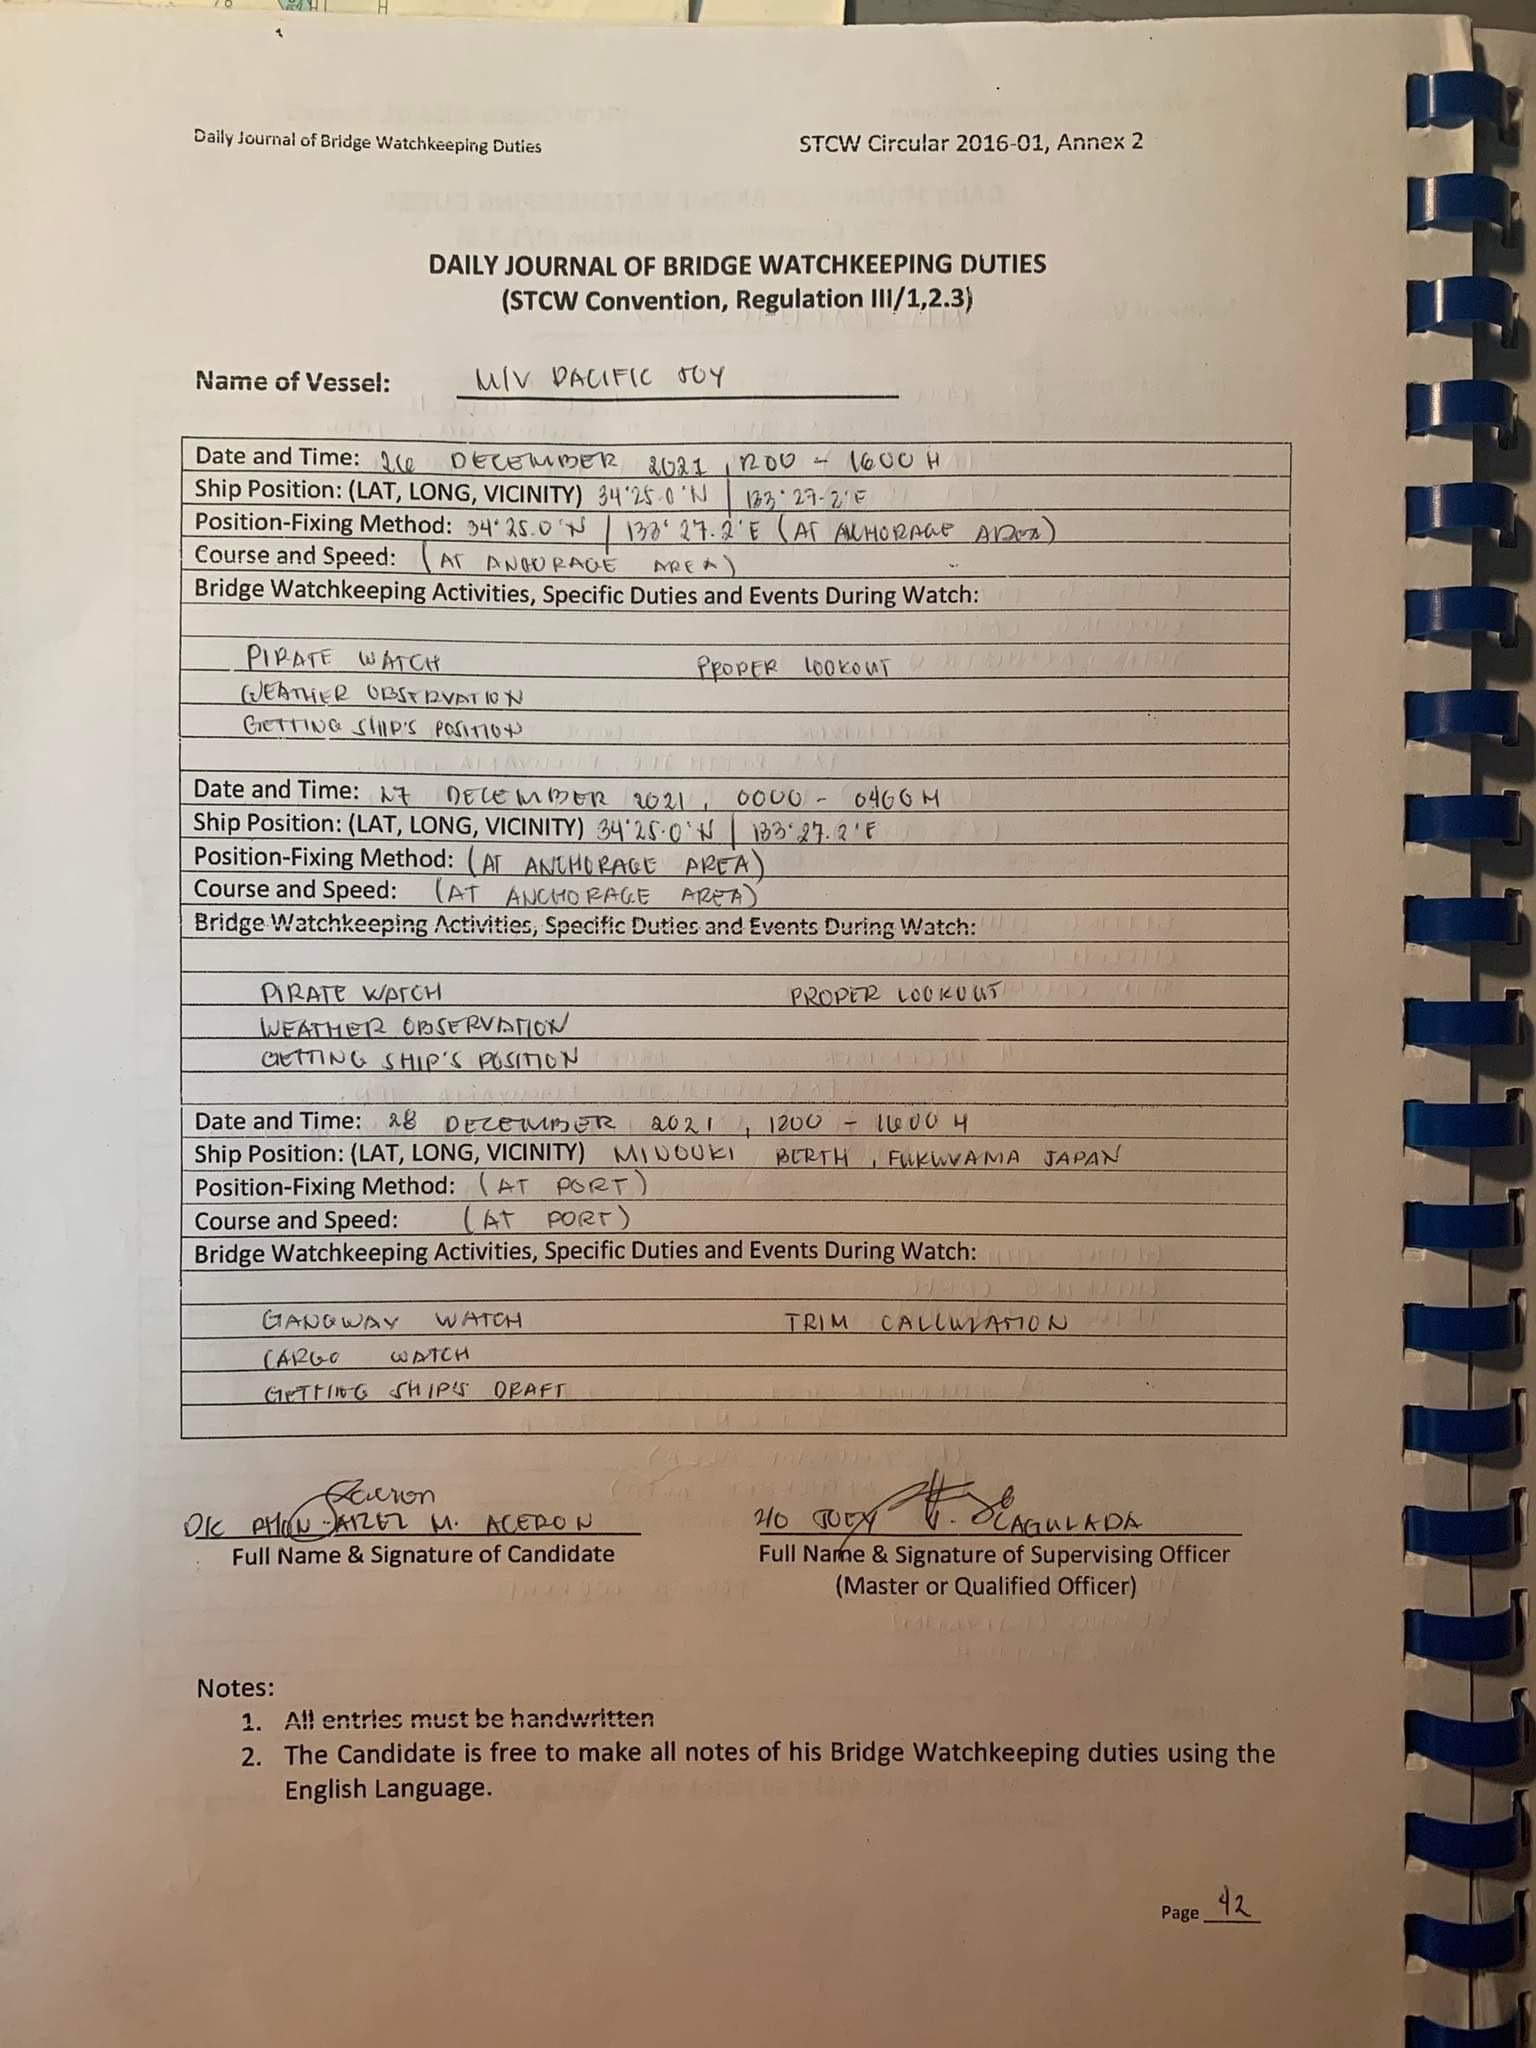 Daily Journal of Bridge Watchkeeping Duties STCW Circular 2016-01, Annex 2
DAILY JOURNAL OF BRIDGE WATCHKEEPING DUTIES
(STCW Convention, Regulation III/1,2.3)
Name of Vessel: M/V PACIFIC JOY
Date and Time: 26 DECEMBER 2021, 1200 - 1600 H
Ship Position: (LAT, LONG, VICINITY) 34°25.0'N | 133°27.2'E
Position-Fixing Method: 34°25.0'N | 133°27.2'E (AT ANCHORAGE AREA)
Course and Speed: (AT ANCORAGE AREA)
Bridge Watchkeeping Activities, Specific Duties and Events During Watch:
PIRATE WATCH PROPER LOOKOUT
WEATHER OBSERVATION
GETTING SHIP'S POSITION
Date and Time: 27 DECEMBER 2021, 0000 - 0400 H
Ship Position: (LAT, LONG, VICINITY) 34°25.0'N | 133°27.2'E
Position-Fixing Method: (AT ANCHORAGE AREA)
Course and Speed: (AT ANCHORAGE AREA)
Bridge Watchkeeping Activities, Specific Duties and Events During Watch:
PIRATE WATCH PROPER LOOKOUT
WEATHER OBSERVATION
GETTING SHIP'S POSITION
Date and Time: 28 DECEMBER 2021, 1200 - 1600 H
Ship Position: (LAT, LONG, VICINITY) MINOUKI BERTH, FUKUYAMA JAPAN
Position-Fixing Method: (AT PORT)
Course and Speed: (AT PORT)
Bridge Watchkeeping Activities, Specific Duties and Events During Watch:
GANGWAY WATCH TRIM CALCULATION
CARGO WATCH
GETTING SHIP'S DRAFT
D/C M. ACERON 2/O JOEY CAGULADA
Full Name & Signature of Candidate Full Name & Signature of Supervising Officer
(Master or Qualified Officer)
Notes:
1. All entries must be handwritten
2. The Candidate is free to make all notes of his Bridge Watchkeeping duties using the
English Language.
Page 42